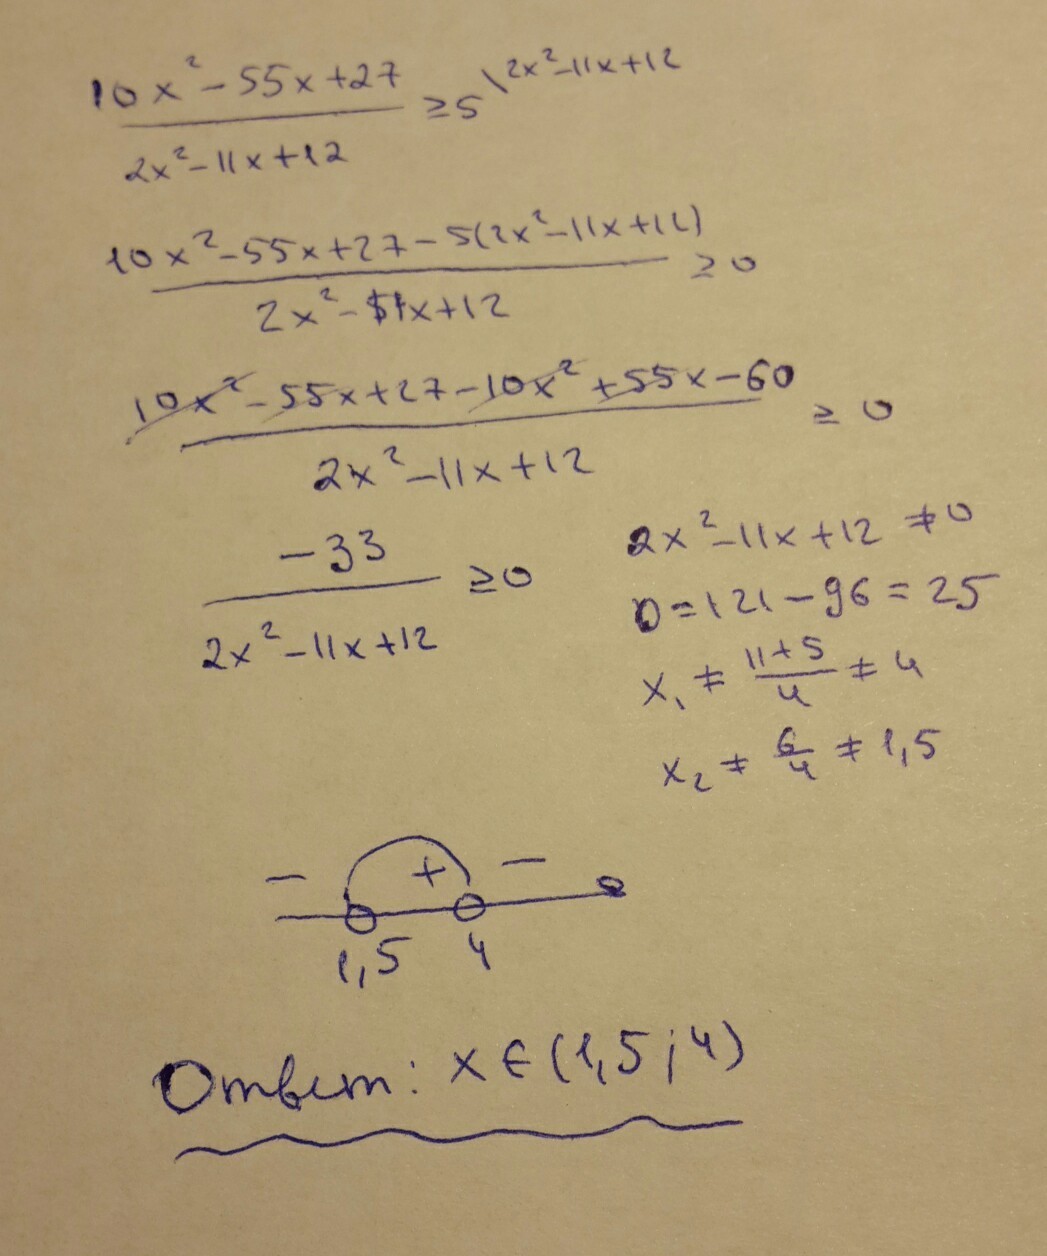 (10x² - 55x + 27)/(2x² - 11x + 12) ≥ 5 \ 2x² - 11x + 12
(10x² - 55x + 27 - 5(2x² - 11x + 12))/(2x² - 11x + 12) ≥ 0
(10x² - 55x + 27 - 10x² + 55x - 60)/(2x² - 11x + 12) ≥ 0
-33/(2x² - 11x + 12) ≥ 0
2x² - 11x + 12 ≠ 0
D = 121 - 96 = 25
x₁ ≠ (11+5)/4 ≠ 4
x₂ ≠ 6/4 ≠ 1,5
- + -
1,5 4
Ответ: x ∈ (1,5; 4)